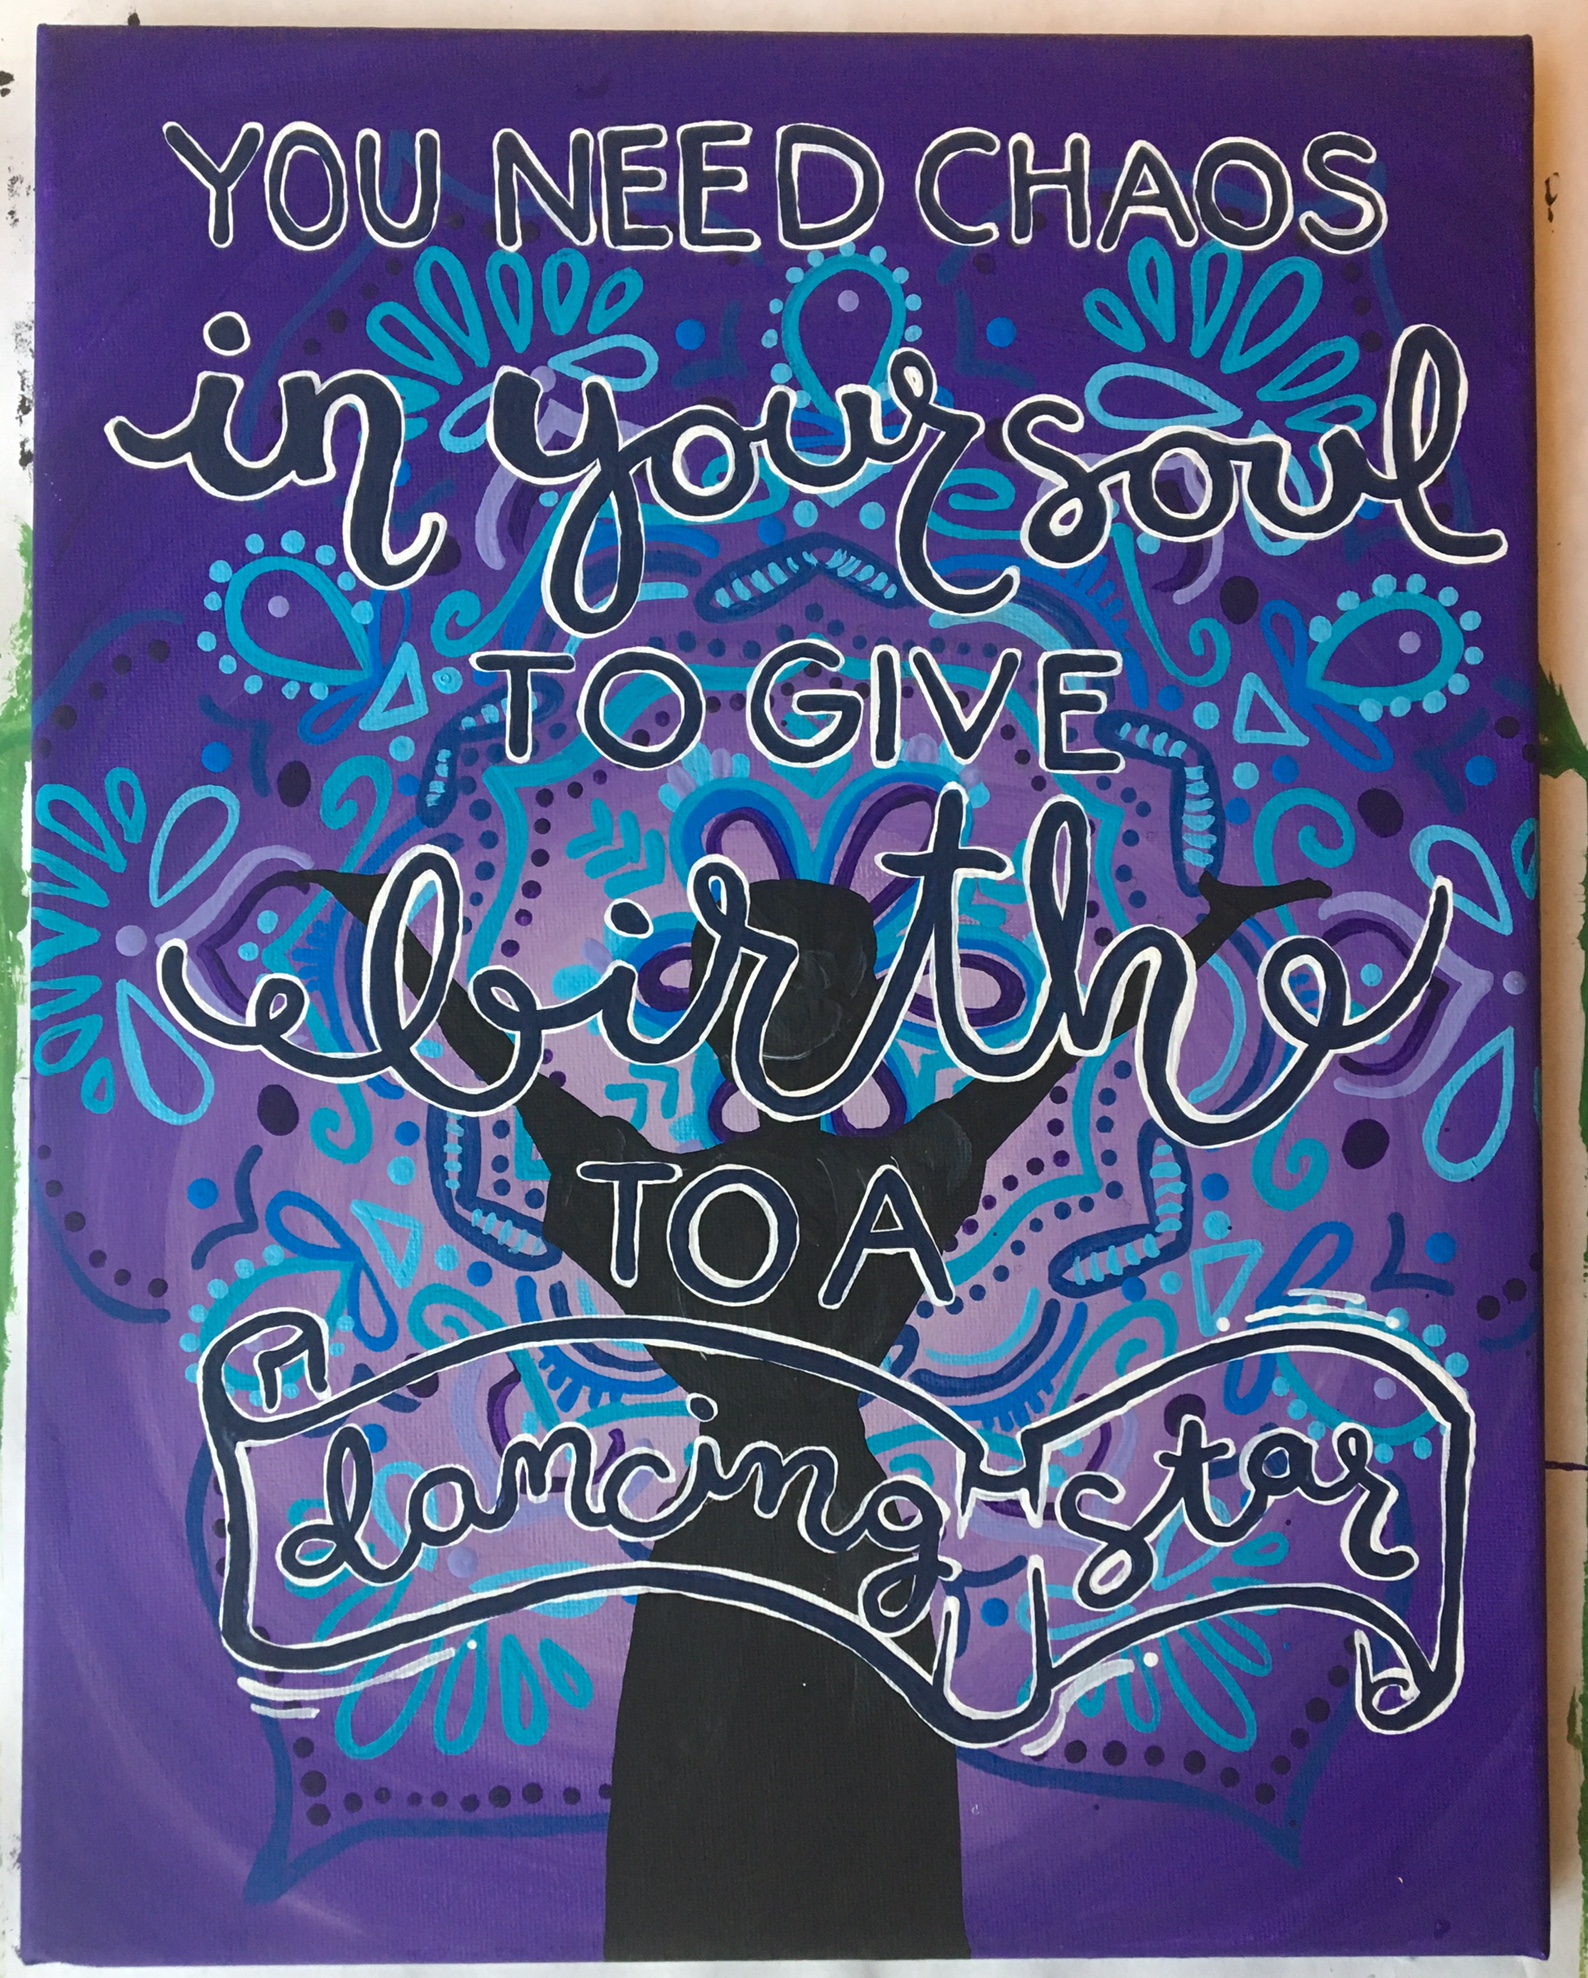 YOU NEED CHAOS
in your soul
TO GIVE
birth
TO A
dancing star